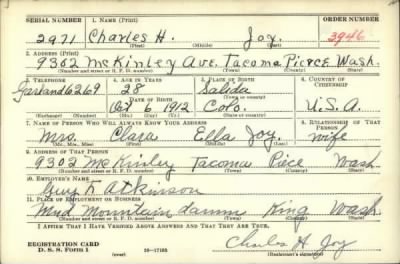 SERIAL NUMBER 1. NAME (Print) ORDER NUMBER
2971 Charles H. Joy. 3946
(First) (Middle) (Last)
2. ADDRESS (Print)
9302 McKinley Ave. Tacoma Pierce Wash.
(Number and street or R. F. D. number) (Town) (County) (State)
3. TELEPHONE 4. AGE IN YEARS 5. PLACE OF BIRTH 6. COUNTRY OF CITIZENSHIP
Garland 6269 28 Salida
DATE OF BIRTH (Town or county)
Oct 6 1912 Colo. U.S.A.
(Mo.) (Day) (Yr.) (State or country)
7. NAME OF PERSON WHO WILL ALWAYS KNOW YOUR ADDRESS 8. RELATIONSHIP OF THAT PERSON
Mrs. Clara Ella Joy. wife
(Mr., Mrs., Miss) (First) (Middle) (Last)
9. ADDRESS OF THAT PERSON
9302 McKinley Tacoma Piece Wash
(Number and street or R. F. D. number) (Town) (County) (State)
10. EMPLOYER'S NAME
Guy F. Atkinson
11. PLACE OF EMPLOYMENT OR BUSINESS
Mud Mountain damm King Wash.
(Number and street or R. F. D. number) (Town) (County) (State)
I AFFIRM THAT I HAVE VERIFIED ABOVE ANSWERS AND THAT THEY ARE TRUE.
REGISTRATION CARD
D. S. S. Form 1 (over) 16—17105 Charles H Joy
(Registrant's signature)